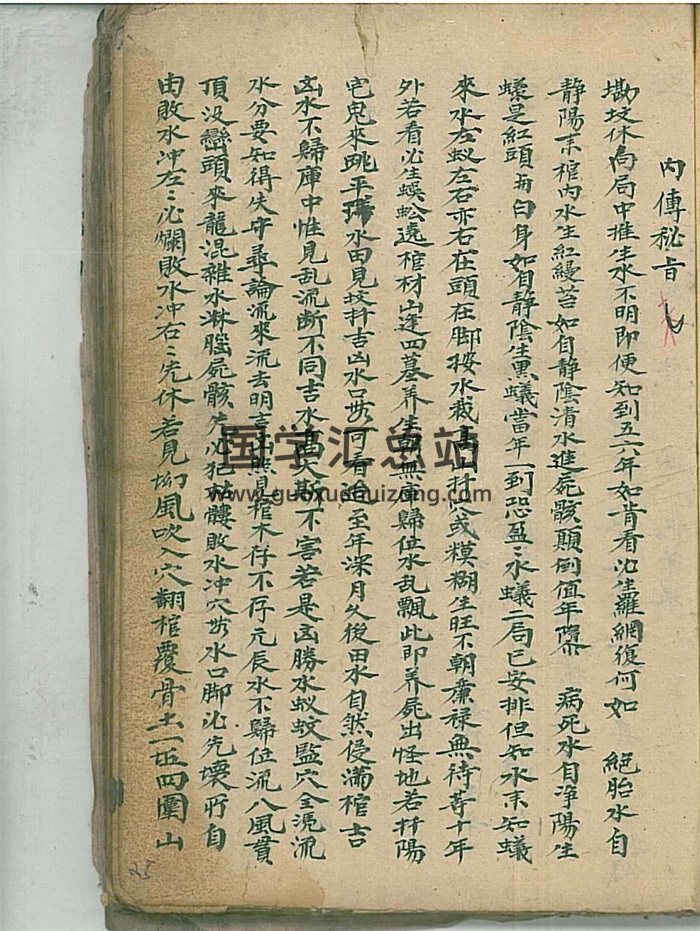 內傳秘旨
墈坟休向局中推生水不明即便知到五六年如肯看必生羅網復何如 絕胎水自
静陽来棺內水生紅縵苔如自静陰清水進屍骸顛倒值年 病死水自净陽生
蟻是紅頭 白身如自静陰生黑蟻當年一到恐盈盈水蟻二局已安排但知水来知蟻
來水左蚁左右亦右在頭在脚按水裁 山扦 或糢糊生旺不朝廉禄無待等十年
外若看必生蜈蚣遶棺材山逢四墓养生 無 歸位水乱飄此即养屍出怪地若扦陽
宅鬼來跳平陽水田見坟扦吉凶水口 可看 至年深月久後田水自然侵满棺吉
凶水不歸庫中惟見乱流断不同吉水 大斯不害若是凶勝水蚁蚊監穴全 流
水分要知得失守尋論流來流去明吉凶 見棺木存不存元辰水不歸位流八風貫
頂没巒頭來龍混雜水淋 屍骸先必犯 髏敗水冲穴 水口脚必先壞 自
由敗水冲左左必爛敗水冲右右先休若見坳風吹入穴翻棺覆骨土一 四圍山
25
国学汇总站
www.guoxuehuizong.com